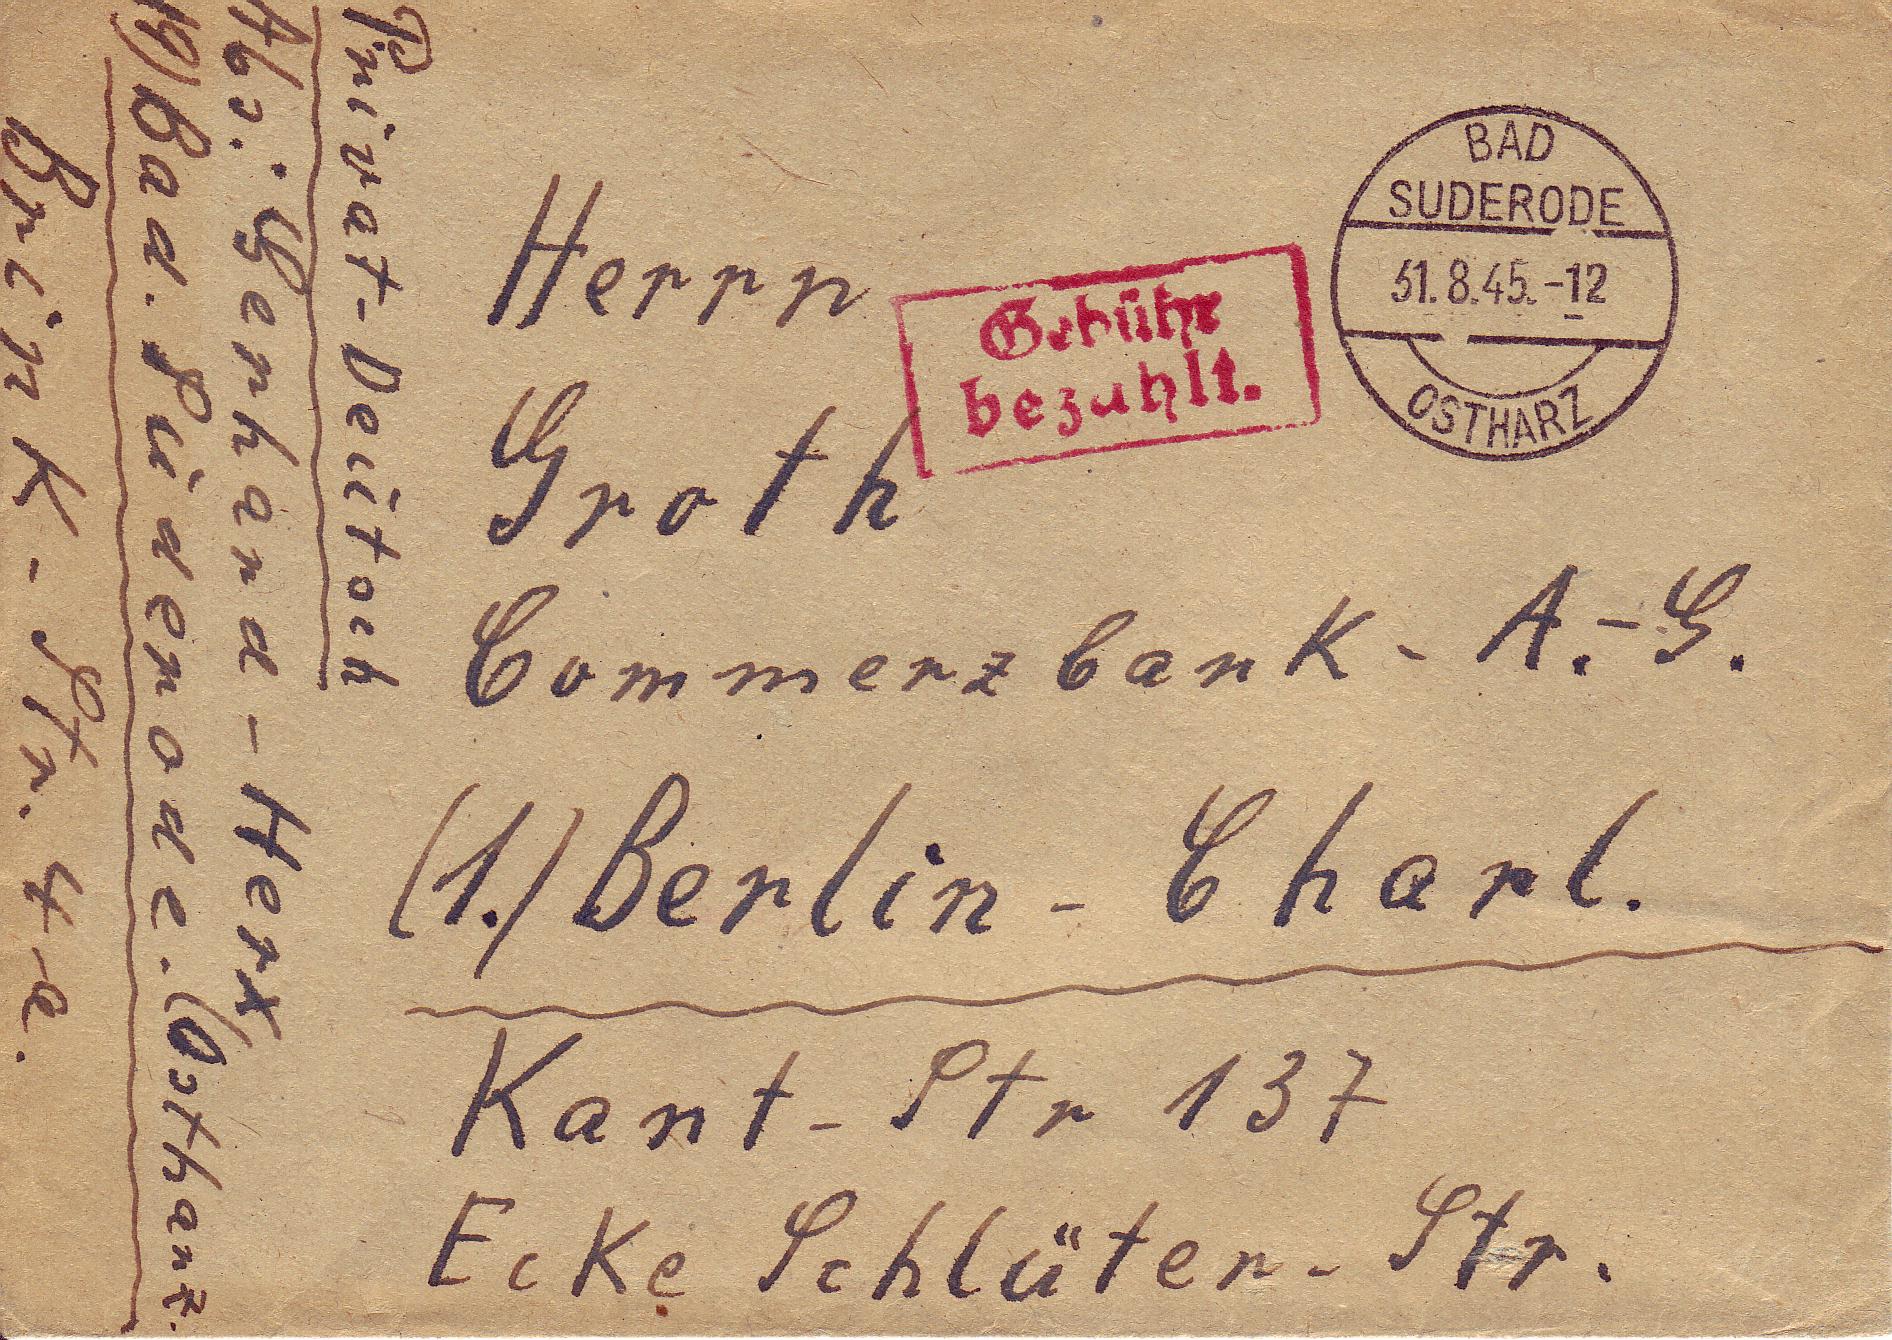 Herrn
Groth
Commerzbank - A.-G.
(1.) Berlin - Charl.
Kant - Str 137
Ecke Schlüter - Str.
Gebühr
bezahlt.
BAD
SUDERODE
31.8.45.-12
OSTHARZ
Privat-Deutsch
Abs.: Gerhard - Herx
19) Bad. Suderode. (Ostharz.
Brink - Str. 4-a.